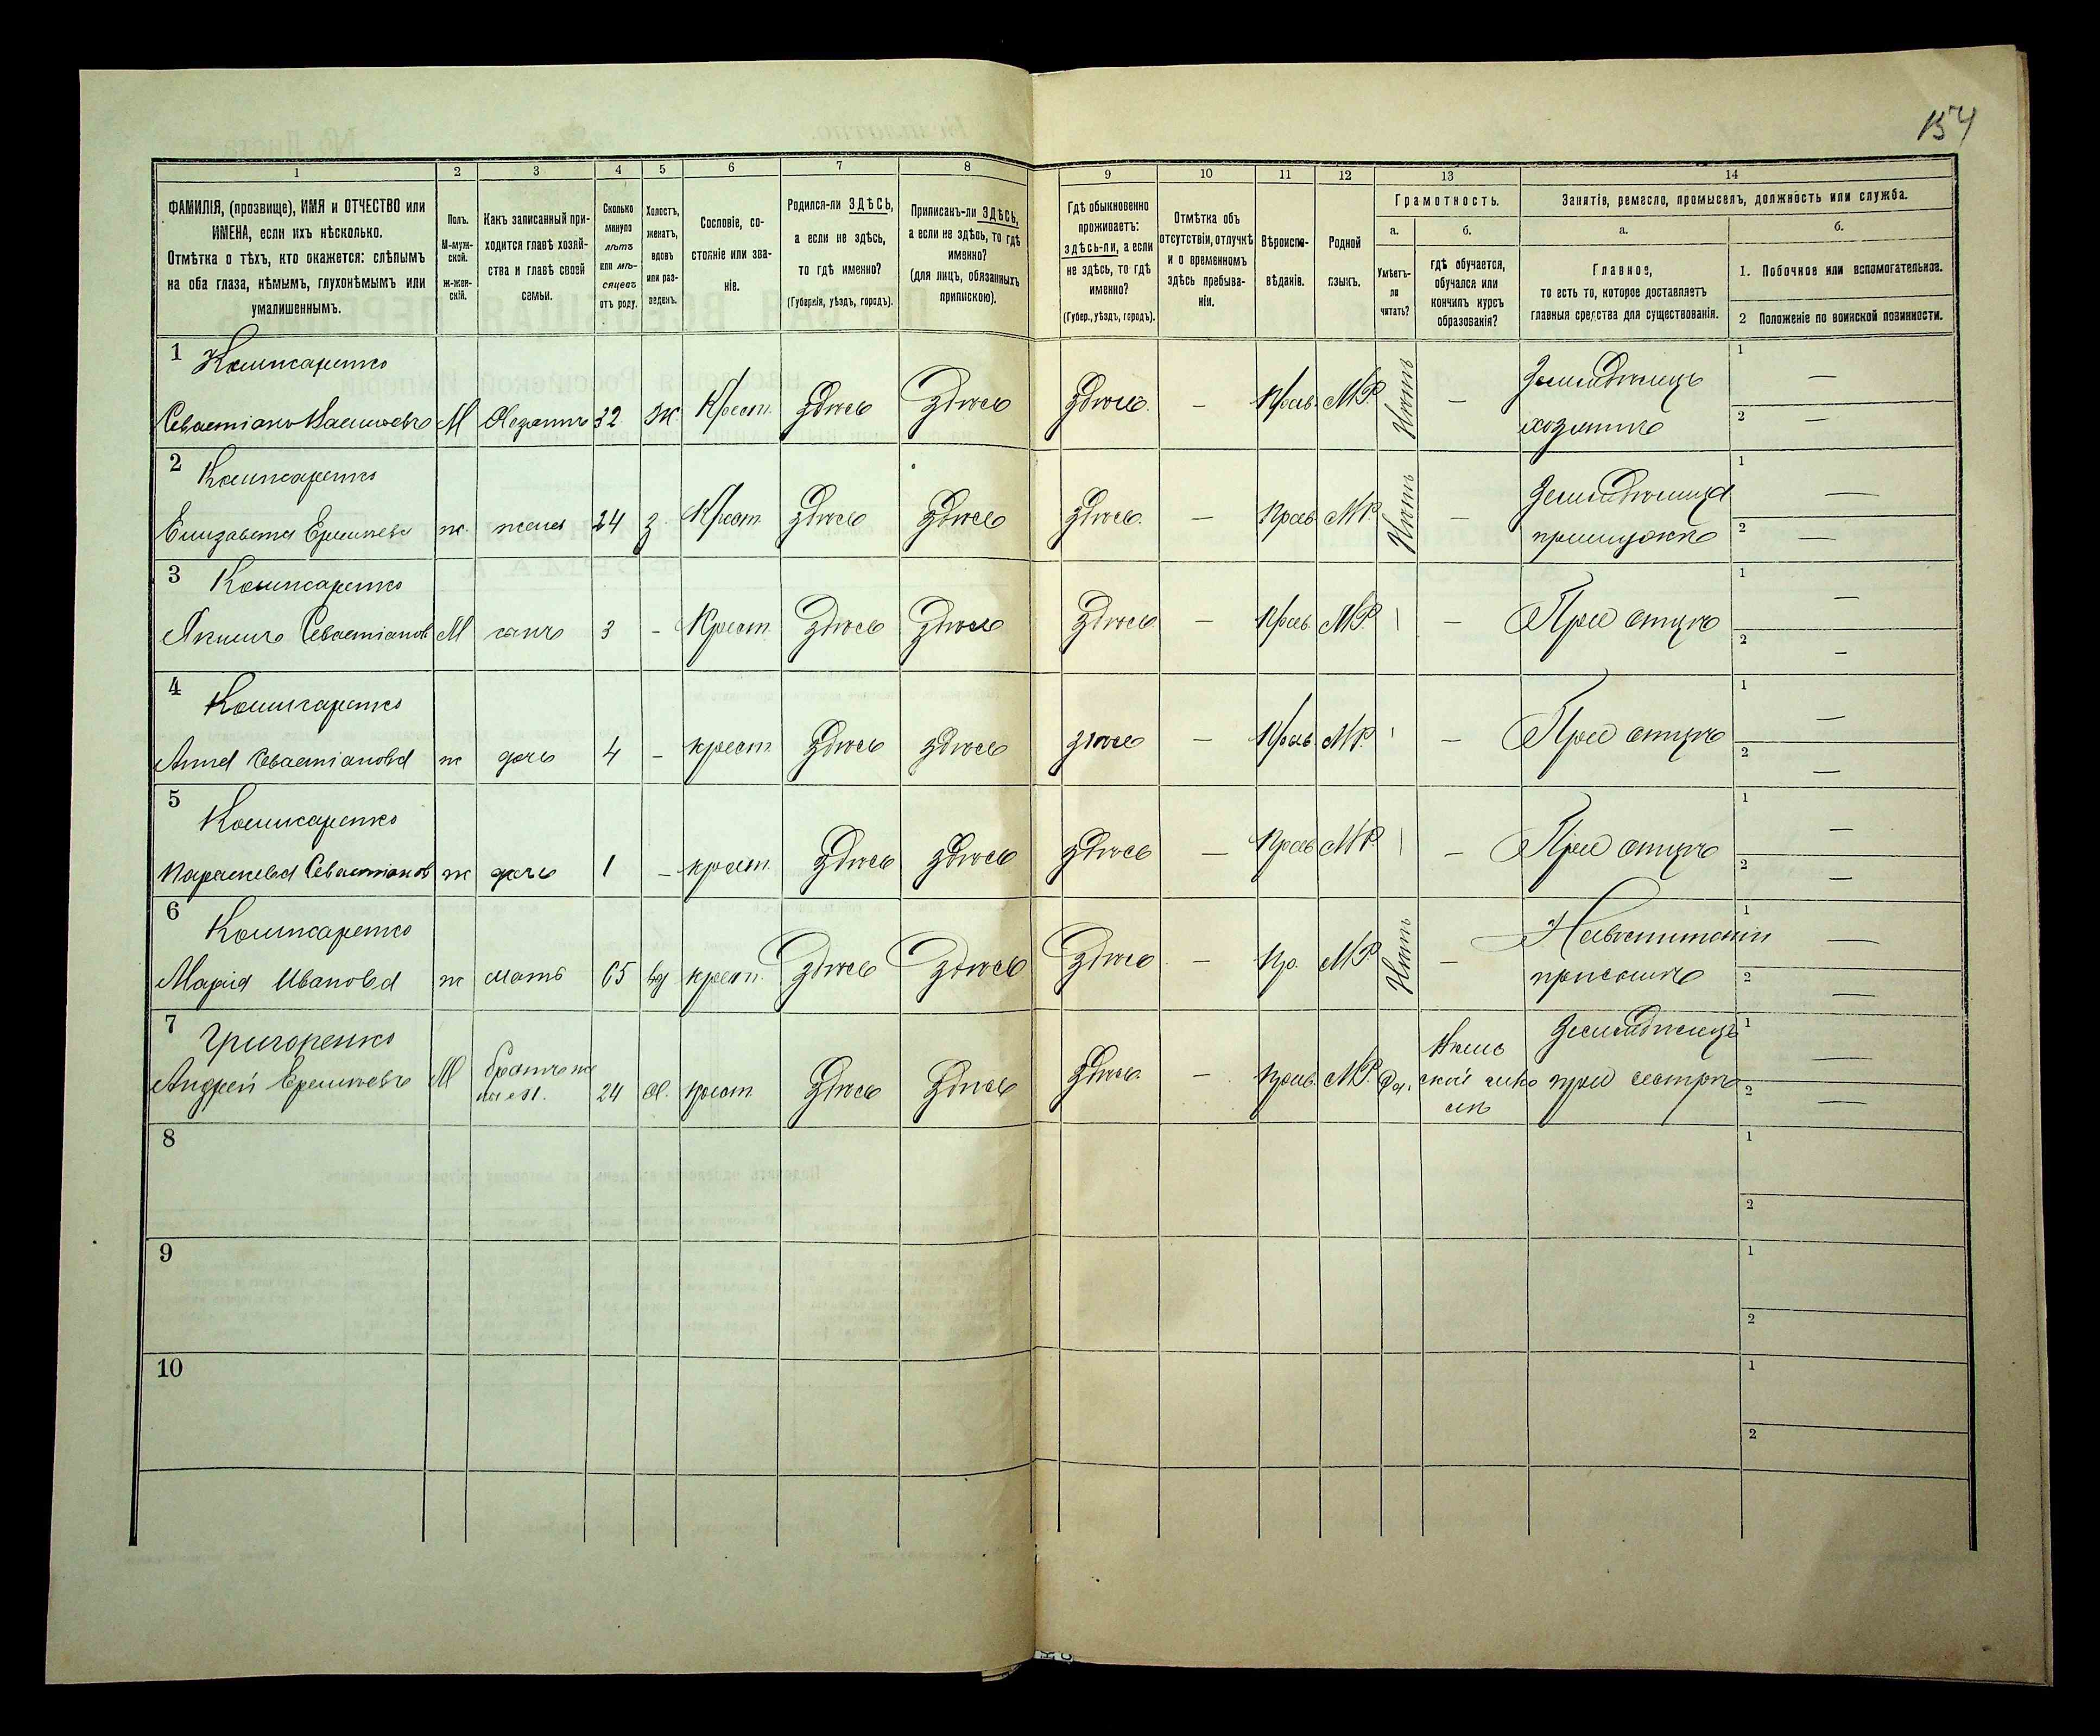 154
1
2
3
4
5
6
7
8
9
10
11
12
13
14
ФАМИЛІЯ, (прозвище), ИМЯ и ОТЧЕСТВО или
ИМЕНА, если ихъ нѣсколько.
Отмѣтка о тѣхъ, кто окажется: слѣпымъ
на оба глаза, нѣмымъ, глухонѣмымъ или
умалишеннымъ.
Полъ.
М-муж-
ской.
Ж-жен-
скій.
Какъ записанный при-
ходится главѣ хозяй-
ства и главѣ своей
семьи.
Сколько
минуло
лѣтъ
или мѣ-
сяцевъ
отъ роду.
Холостъ,
женатъ,
вдовъ
или раз-
веденъ.
Сословіе, со-
стояніе или зва-
ніе.
Родился-ли ЗДѢСЬ,
а если не здѣсь,
то гдѣ именно?
(Губернія, уѣздъ, городъ).
Приписанъ-ли ЗДѢСЬ,
а если не здѣсь, то гдѣ
именно?
(для лицъ, обязанныхъ
припискою).
Гдѣ обыкновенно
проживаетъ:
здѣсь-ли, а если
не здѣсь, то гдѣ
именно?
(Губер., уѣздъ, городъ).
Отмѣтка объ
отсутствіи, отлучкѣ
и о временномъ
здѣсь пребыва-
ніи.
Вѣроиспо-
вѣданіе.
Родной
языкъ.
Грамотность.
а.
Умѣетъ-
ли
читать?
б.
гдѣ обучается,
обучался или
кончилъ курсъ
образованія?
Занятіе, ремесло, промыселъ, должность или служба.
а.
Главное,
то есть то, которое доставляетъ
главныя средства для существованія.
б.
1. Побочное или вспомогательное.
2 Положеніе по воинской повинности.
1 Кошкаренко
М 32 Ж. Крест. Здѣсь Здѣсь Здѣсь. — Прав. М.Р. Нѣтъ — Земледѣлецъ 1 —
хозяинъ 2 —
2 Кошкаренко
Елизавета ж. жена 24 З. Крест. Здѣсь Здѣсь Здѣсь. — Прав М.Р. Нѣтъ — 1 —
2 —
3 Кошкаренко
Якимъ Севастіанов М сынъ 3 - Крест. Здѣсь Здѣсь Здѣсь — Прав. М.Р. — При отцѣ 1 —
2 —
4 Кошкаренко
Анна Севастіанова ж дочь 4 - крест Здѣсь здѣсь здѣсь — Прав М.Р. — При отцѣ 1 —
2 —
5 Кошкаренко
Параскева Севастіанов ж дочь 1 - крест. Здѣсь здѣсь здѣсь — Прав М.Р. — При отцѣ 1 —
2 —
6 Кошкаренко
Марія Иванова ж мать 65 вд крест. Здѣсь Здѣсь Здѣсь — Пр. М.Р. Нѣтъ — 1 —
при сынѣ 2 —
7 Григоренко
Андрей М братъ же
ны 24 Х. крест Здѣсь Здѣсь Здѣсь. — Прав. М.Р. Да. Земледѣлецъ 1 —
при сестрѣ 2 —
8 1
2
9 1
2
10 1
2